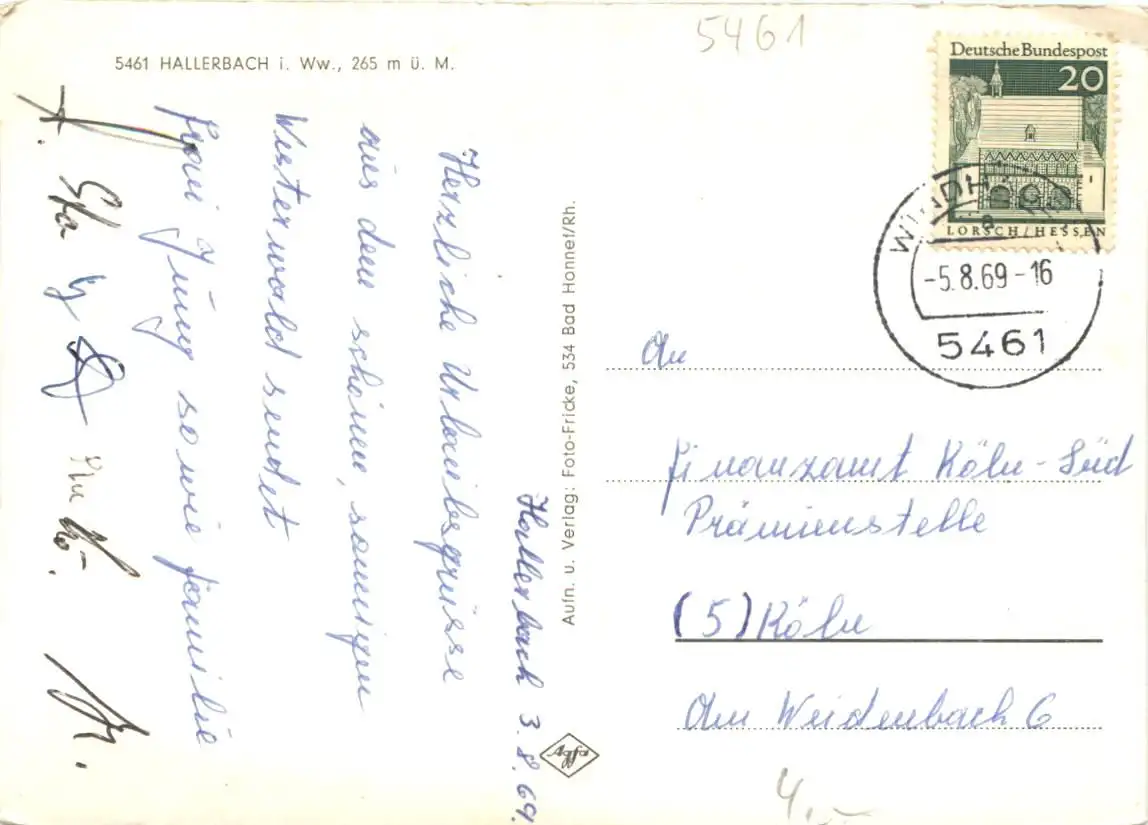 5461
5461 HALLERBACH i. Ww., 265 m ü. M.
Deutsche Bundespost
20
LORSCH/HESSEN
-5.8.69-16
5461
Hallerbach 3.8.69.
Herzliche Urlaubsgrüsse
aus dem schönen, sonnigen
Westerwald sendet
Frau Jung sowie Familie
Aufn. u. Verlag: Foto-Fricke, 534 Bad Honnef/Rh.
An
Finanzamt Köln-Süd
Prämienstelle
(5) Köln
Am Weidenbach 6
Agfa
4,-